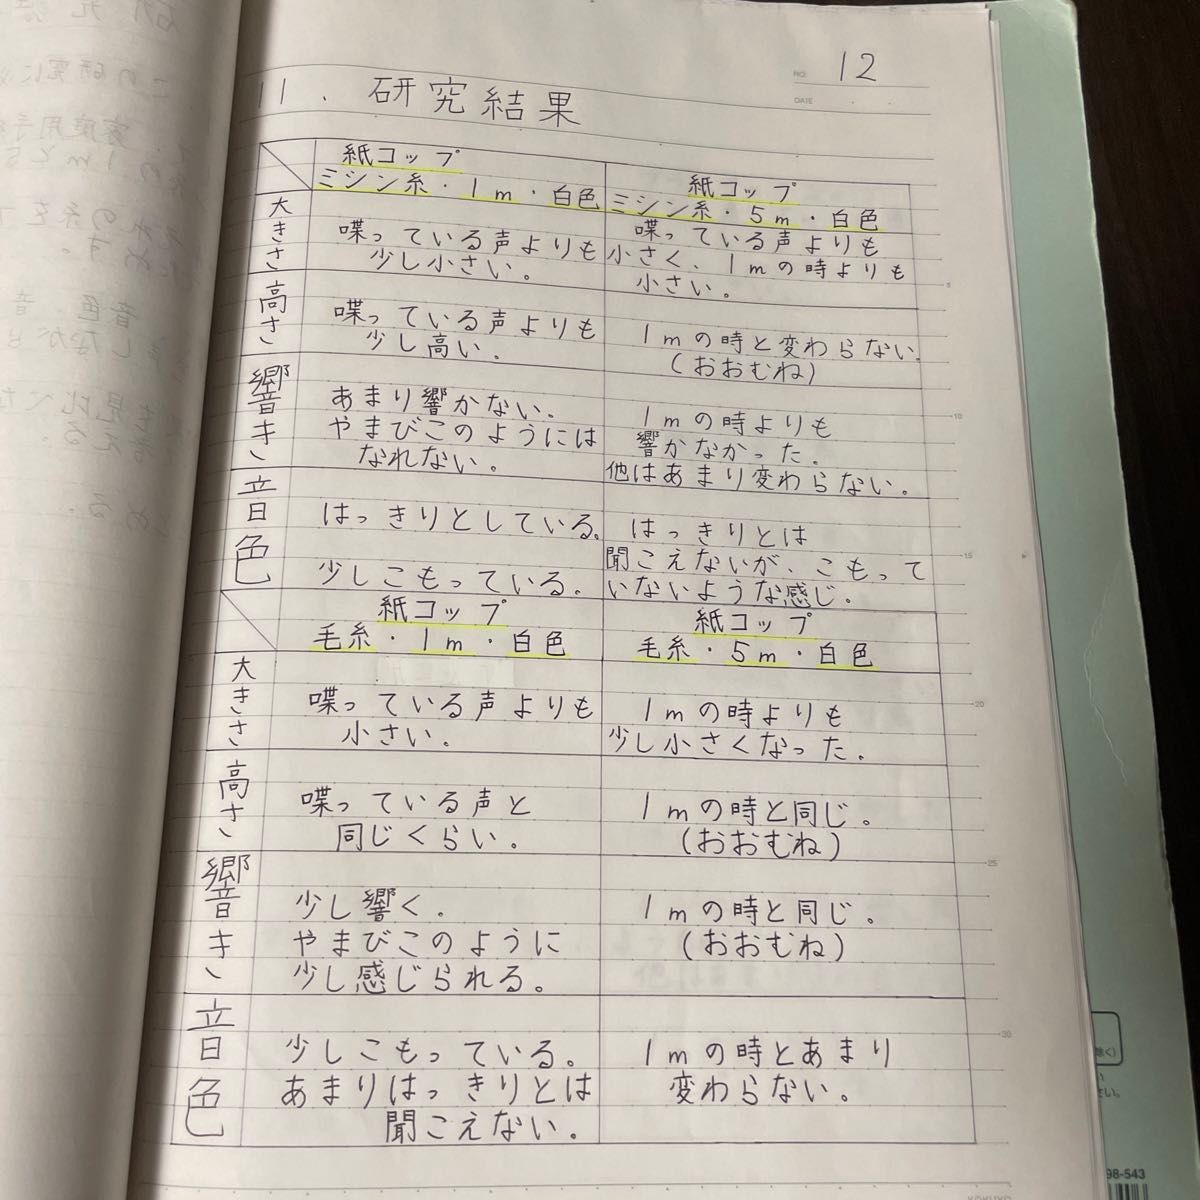 12
NO.
DATE
11. 研究結果
紙コップ
ミシン糸・1m・白色
紙コップ
ミシン糸・5m・白色
大きさ
喋っている声よりも
少し小さい。
喋っている声よりも
小さく、1mの時よりも
小さい。
高さ
喋っている声よりも
少し高い。
1mの時と変わらない。
(おおむね)
響き
あまり響かない。
やまびこのようには
なれない。
1mの時よりも
響かなかった。
他はあまり変わらない。
音色
はっきりとしている。
少しこもっている。
はっきりとは
聞こえないが、こもって
いないような感じ。
紙コップ
毛糸・1m・白色
紙コップ
毛糸・5m・白色
大きさ
喋っている声よりも
小さい。
1mの時よりも
少し小さくなった。
高さ
喋っている声と
同じくらい。
1mの時と同じ。
(おおむね)
響き
少し響く。
やまびこのように
少し感じられる。
1mの時と同じ。
(おおむね)
音色
少しこもっている。
あまりはっきりとは
聞こえない。
1mの時とあまり
変わらない。
5
10
15
20
25
30
98-543